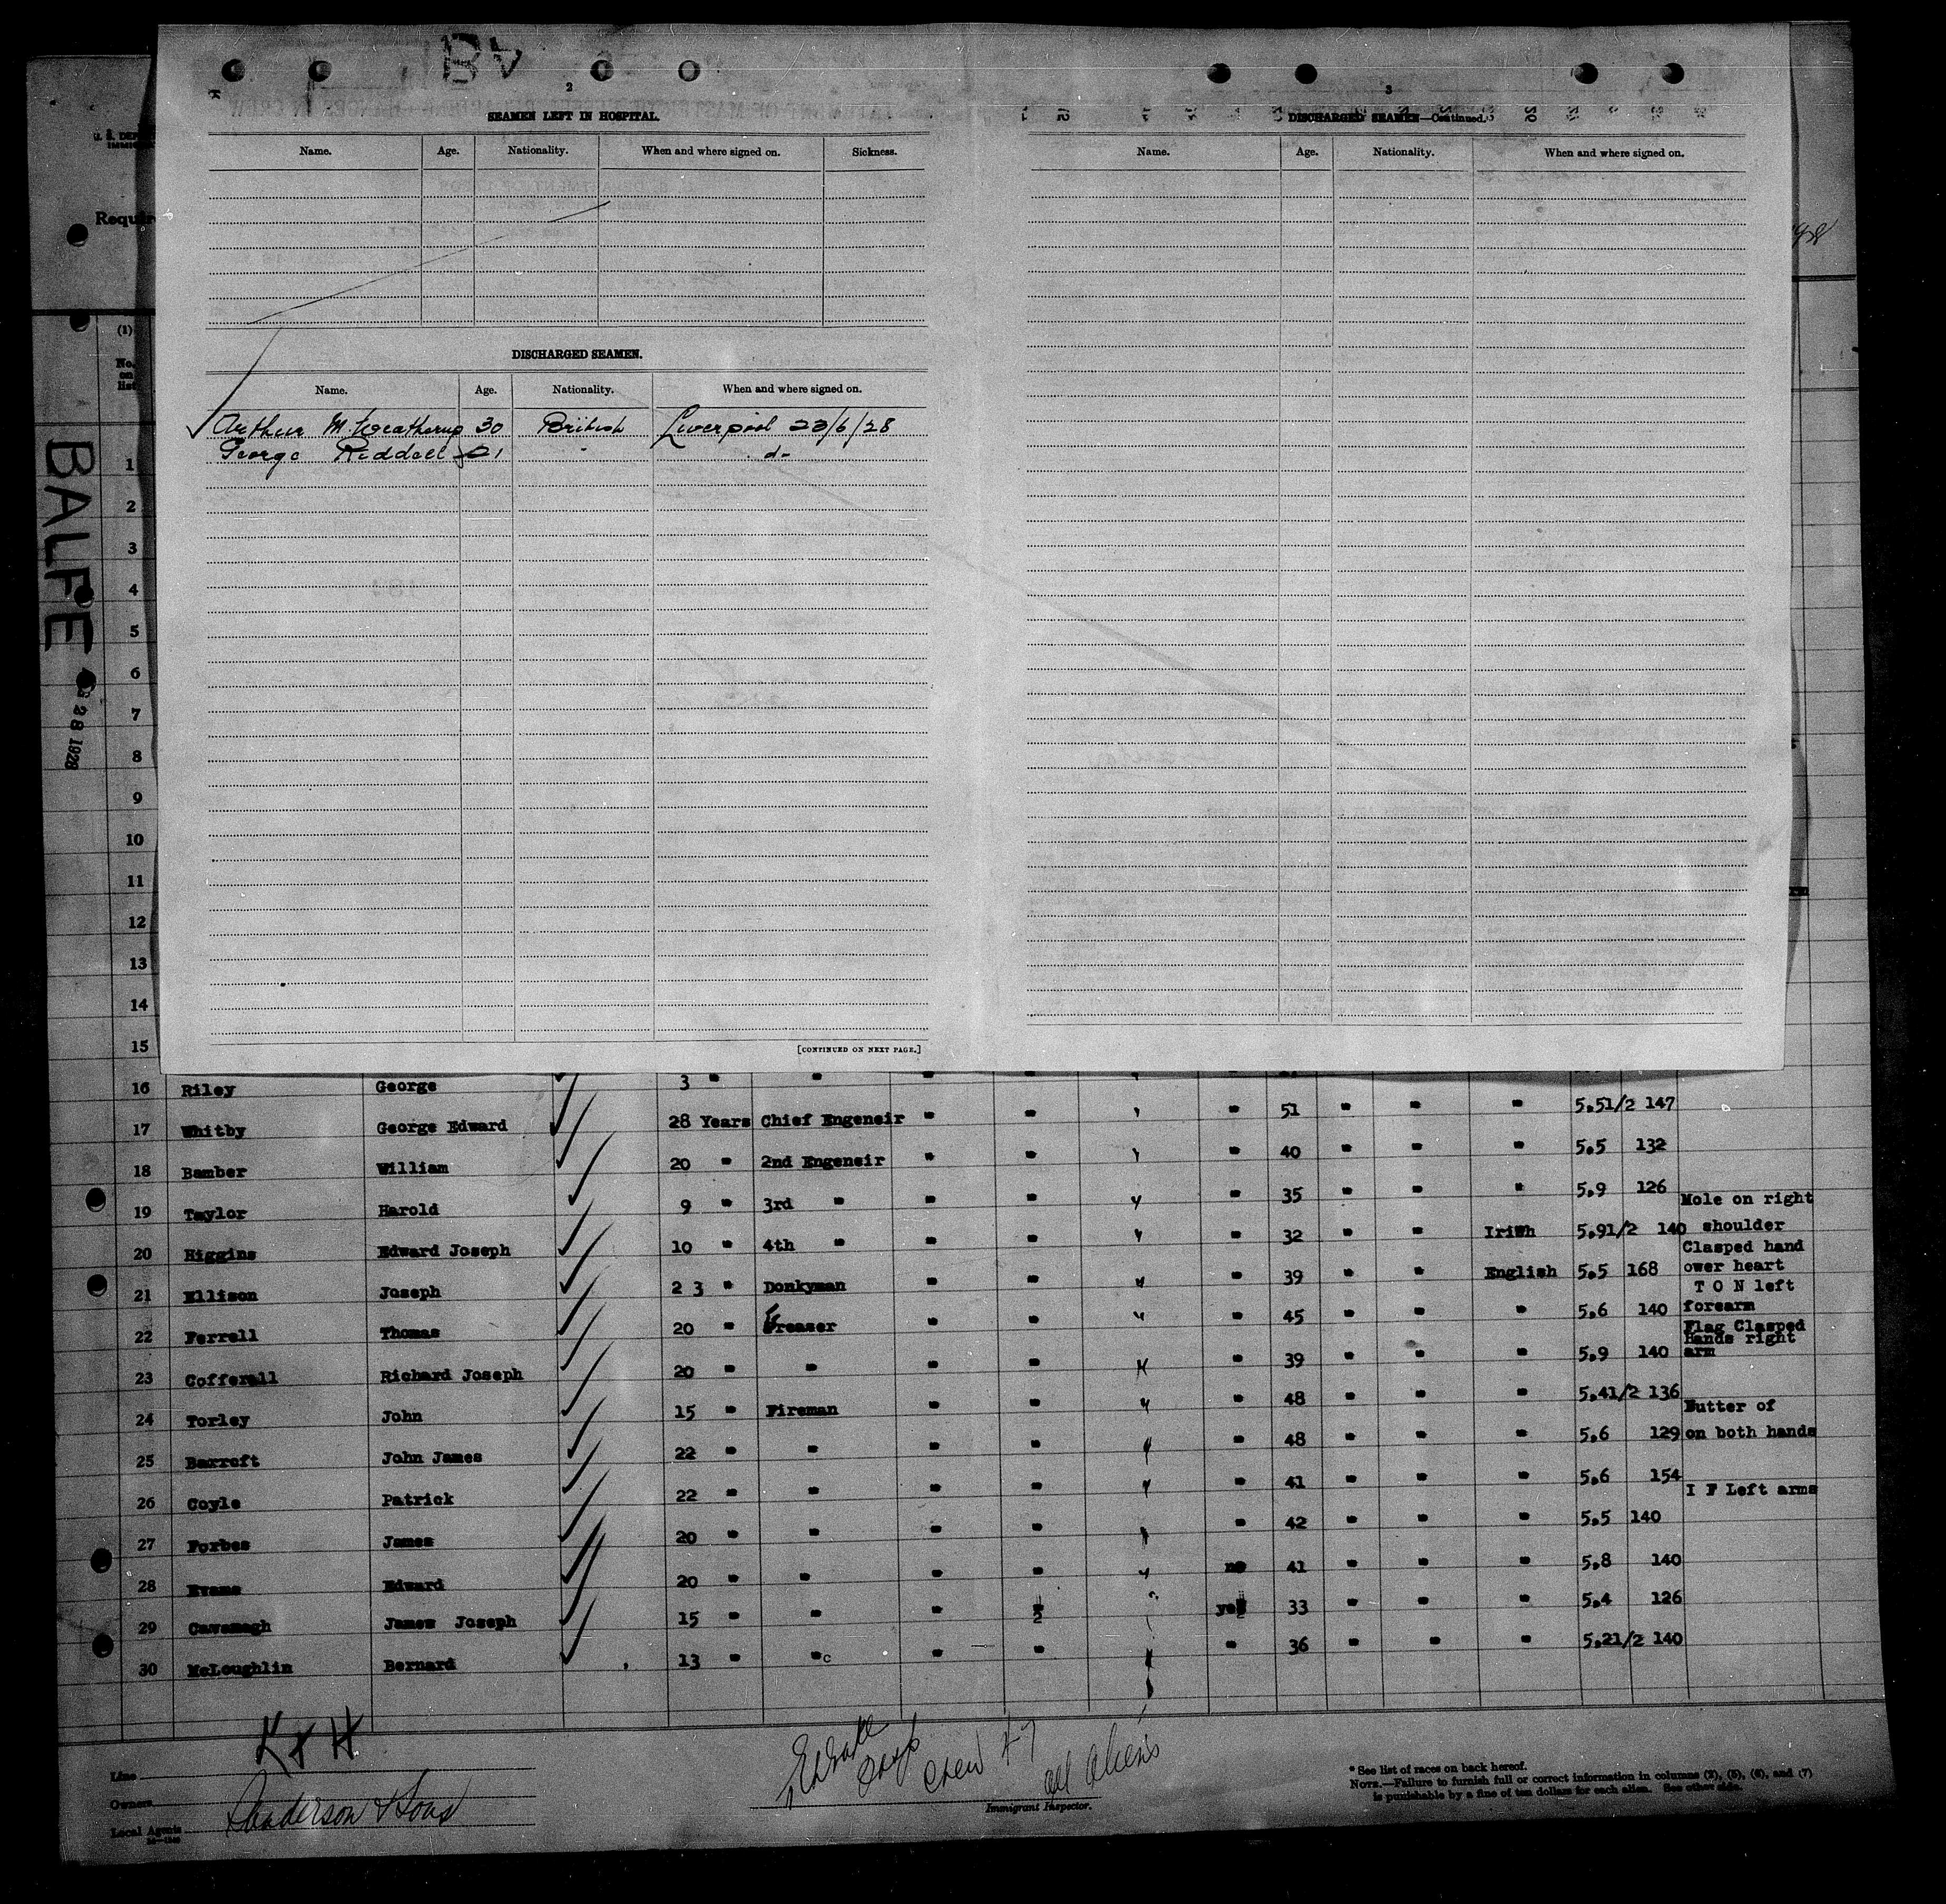 BA
2
SEAMEN LEFT IN HOSPITAL.
Name. Age. Nationality. When and where signed on. Sickness.
DISCHARGED SEAMEN.
Name. Age. Nationality. When and where signed on.
Arthur M. Weatherup 30 British Liverpool 23/6/28
George Riddell 21 " do
[CONTINUED ON NEXT PAGE.]
3
DISCHARGED SEAMEN—Continued.
Name. Age. Nationality. When and where signed on.
U. S. DEP
IMMI
Requir
(1)
No.
on
list
BALFE
28 1928
1
2
3
4
5
6
7
8
9
10
11
12
13
14
15
16 Riley George 3 " " " "
17 Whitby George Edward 28 Years Chief Engeneir " " " 51 " " " 5.51/2 147
18 Bamber William 20 " 2nd Engeneir " " " 40 " " " 5.5 132
19 Taylor Harold 9 " 3rd " " " " 35 " " " 5.9 126 Mole on right
20 Higgins Edward Joseph 10 " 4th " " " " 32 " " Irish 5.91/2 140 shoulder
Clasped hand
21 Ellison Joseph 2 3 " Donkyman " " " 39 " " English 5.5 168 ower heart
T O N left
22 Ferrell Thomas 20 " Greaser " " " 45 " " " 5.6 140 forearm
Flag Clasped
Hands right
23 Cofferall Richard Joseph 20 " " " " " 39 " " " 5.9 140 arm
24 Torley John 15 " Fireman " " " 48 " " " 5.41/2 136
Butter of
25 Barroft John James 22 " " " " " 48 " " " 5.6 129 on both hands
26 Coyle Patrick 22 " " " " " 41 " " " 5.6 154
I F Left arms
27 Forbes James 20 " " " " " 42 " " " 5.5 140
28 Evans Edward 20 " " " " no 41 " " " 5.8 140
29 Cavanagh James Joseph 15 " " " 2 yes 33 " " " 5.4 126
30 McLoughlin Bernard 13 " " " " " 36 " " " 5.21/2 140
Line K & H
Owners
Local Agents Sanderson & Sons
Crew 47
all Aliens
Immigrant Inspector.
* See list of races on back hereof.
NOTE.—Failure to furnish full or correct information in columns (2), (5), (6), and (7)
is punishable by a fine of ten dollars for each alien. See other side.